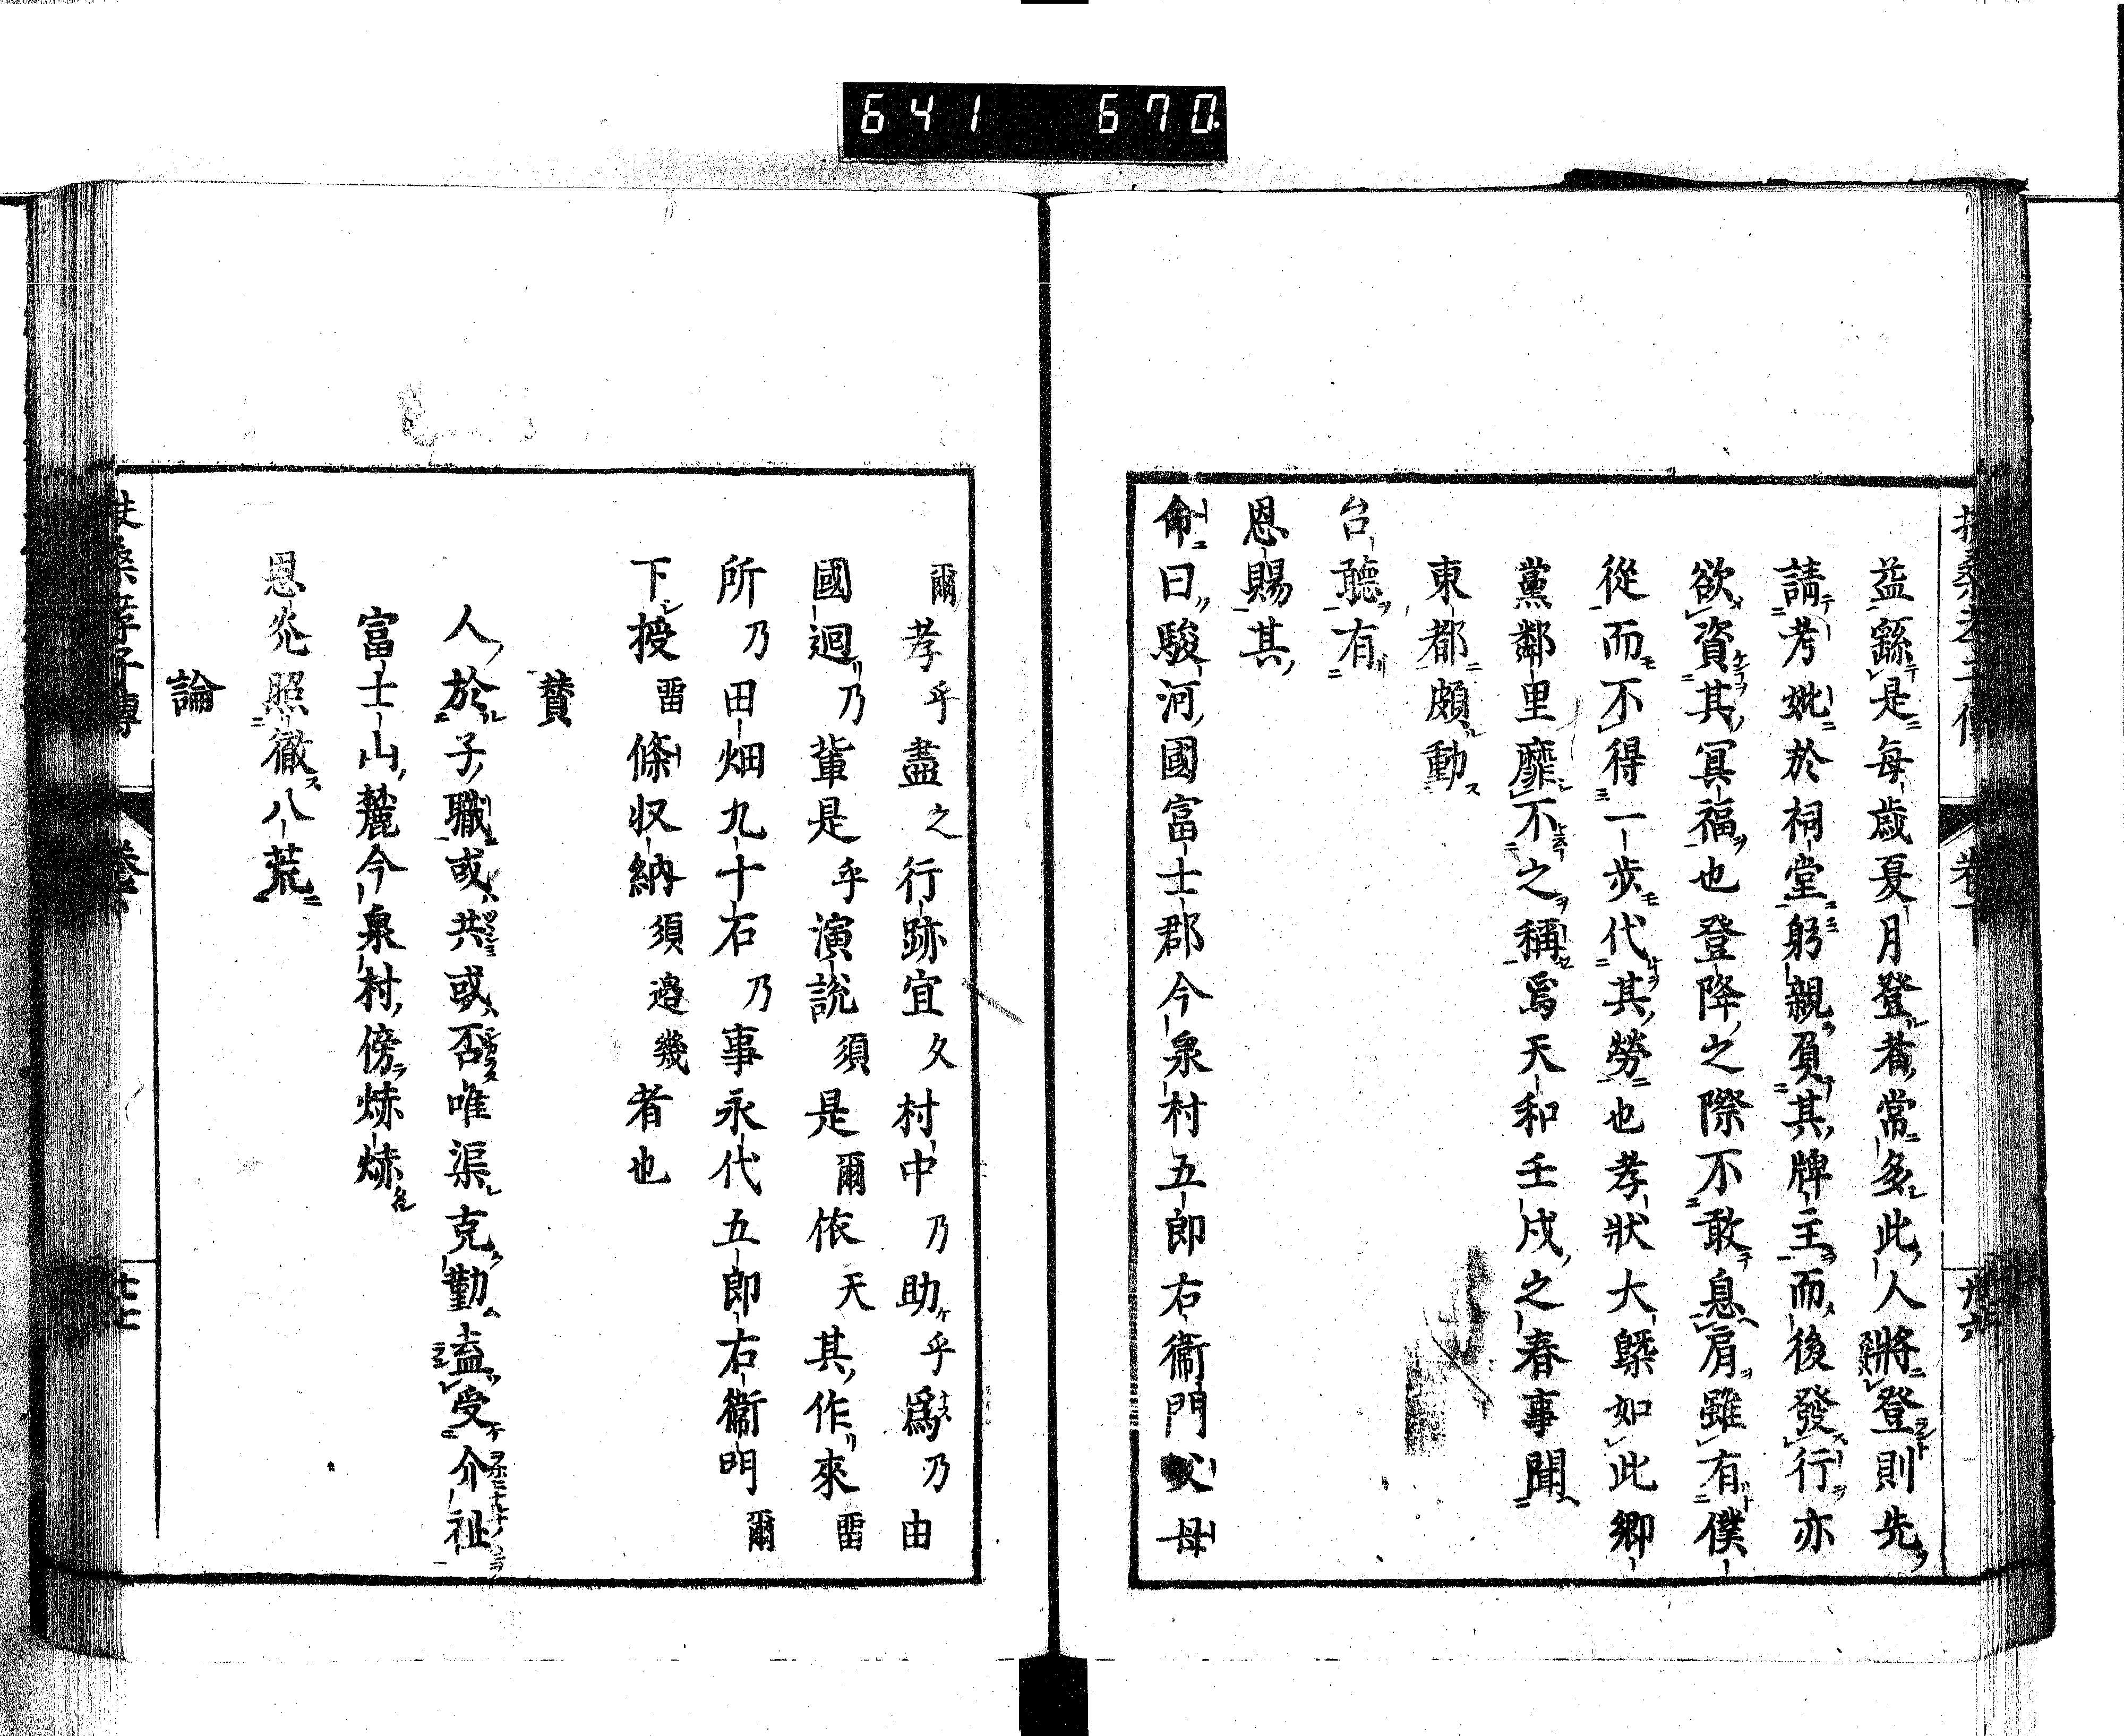 641 670
益繇是每歳夏月登者常多此人將登則先
請考妣於祠堂躬親負其牌主而後發行亦
欲資其冥福也登降之際不敢息肩雖有僕
從而不得一步代其勞也孝狀大槩如此鄉
黨鄰里靡不之稱焉天和壬戌之春事聞
東都頗動
台聽有
恩賜其
命曰駿河國富士郡今泉村五郎右衞門父母
爾孝乎盡之行跡宜久村中乃助乎爲乃由
國迴乃輩是乎演説須是爾依天其作來畱
所乃田畑九十石乃事永代五郎右衞門爾
下授畱條収納須邉幾者也
賛
人於子職或共或否唯渠克勤盍受介祉
富士山麓今泉村傍烋烋
恩灮照徹八荒
論
扶桑孝子傳
卷一
廿七